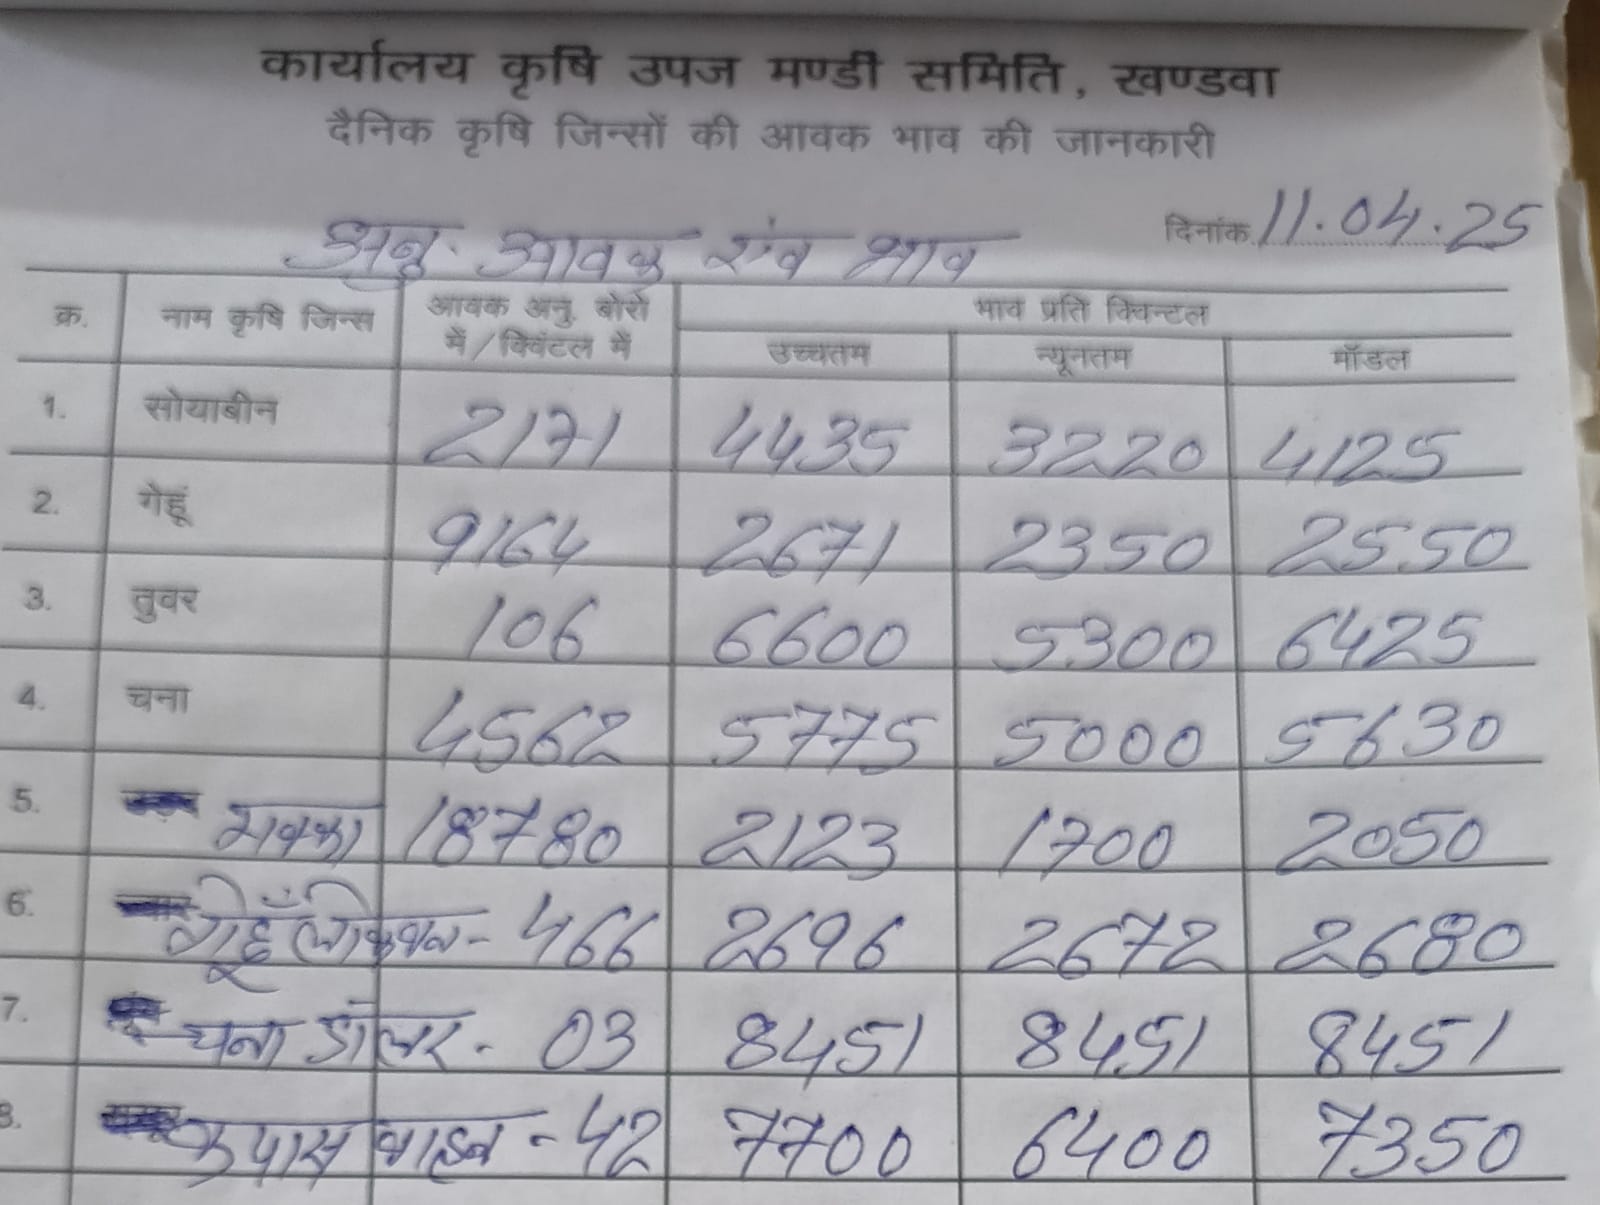 कार्यालय कृषि उपज मण्डी समिति, खण्डवा
दैनिक कृषि जिन्सों की आवक भाव की जानकारी
दिनांक 11.04.25
अनु. आवक एंव भाव
क्र. नाम कृषि जिन्स आवक अनु. बोरो में/क्विंटल में भाव प्रति क्विन्टल
उच्चतम न्यूनतम मॉडल
1. सोयाबीन 2171 4435 3220 4125
2. गेहूं 9164 2671 2350 2550
3. तुवर 106 6600 5300 6425
4. चना 4562 5775 5000 5630
5. मक्का 18780 2123 1700 2050
6. गेहूँ लोकवन - 466 2696 2672 2680
7. चना डॉलर - 03 8451 8451 8451
8. कपास वाहन - 42 7700 6400 7350